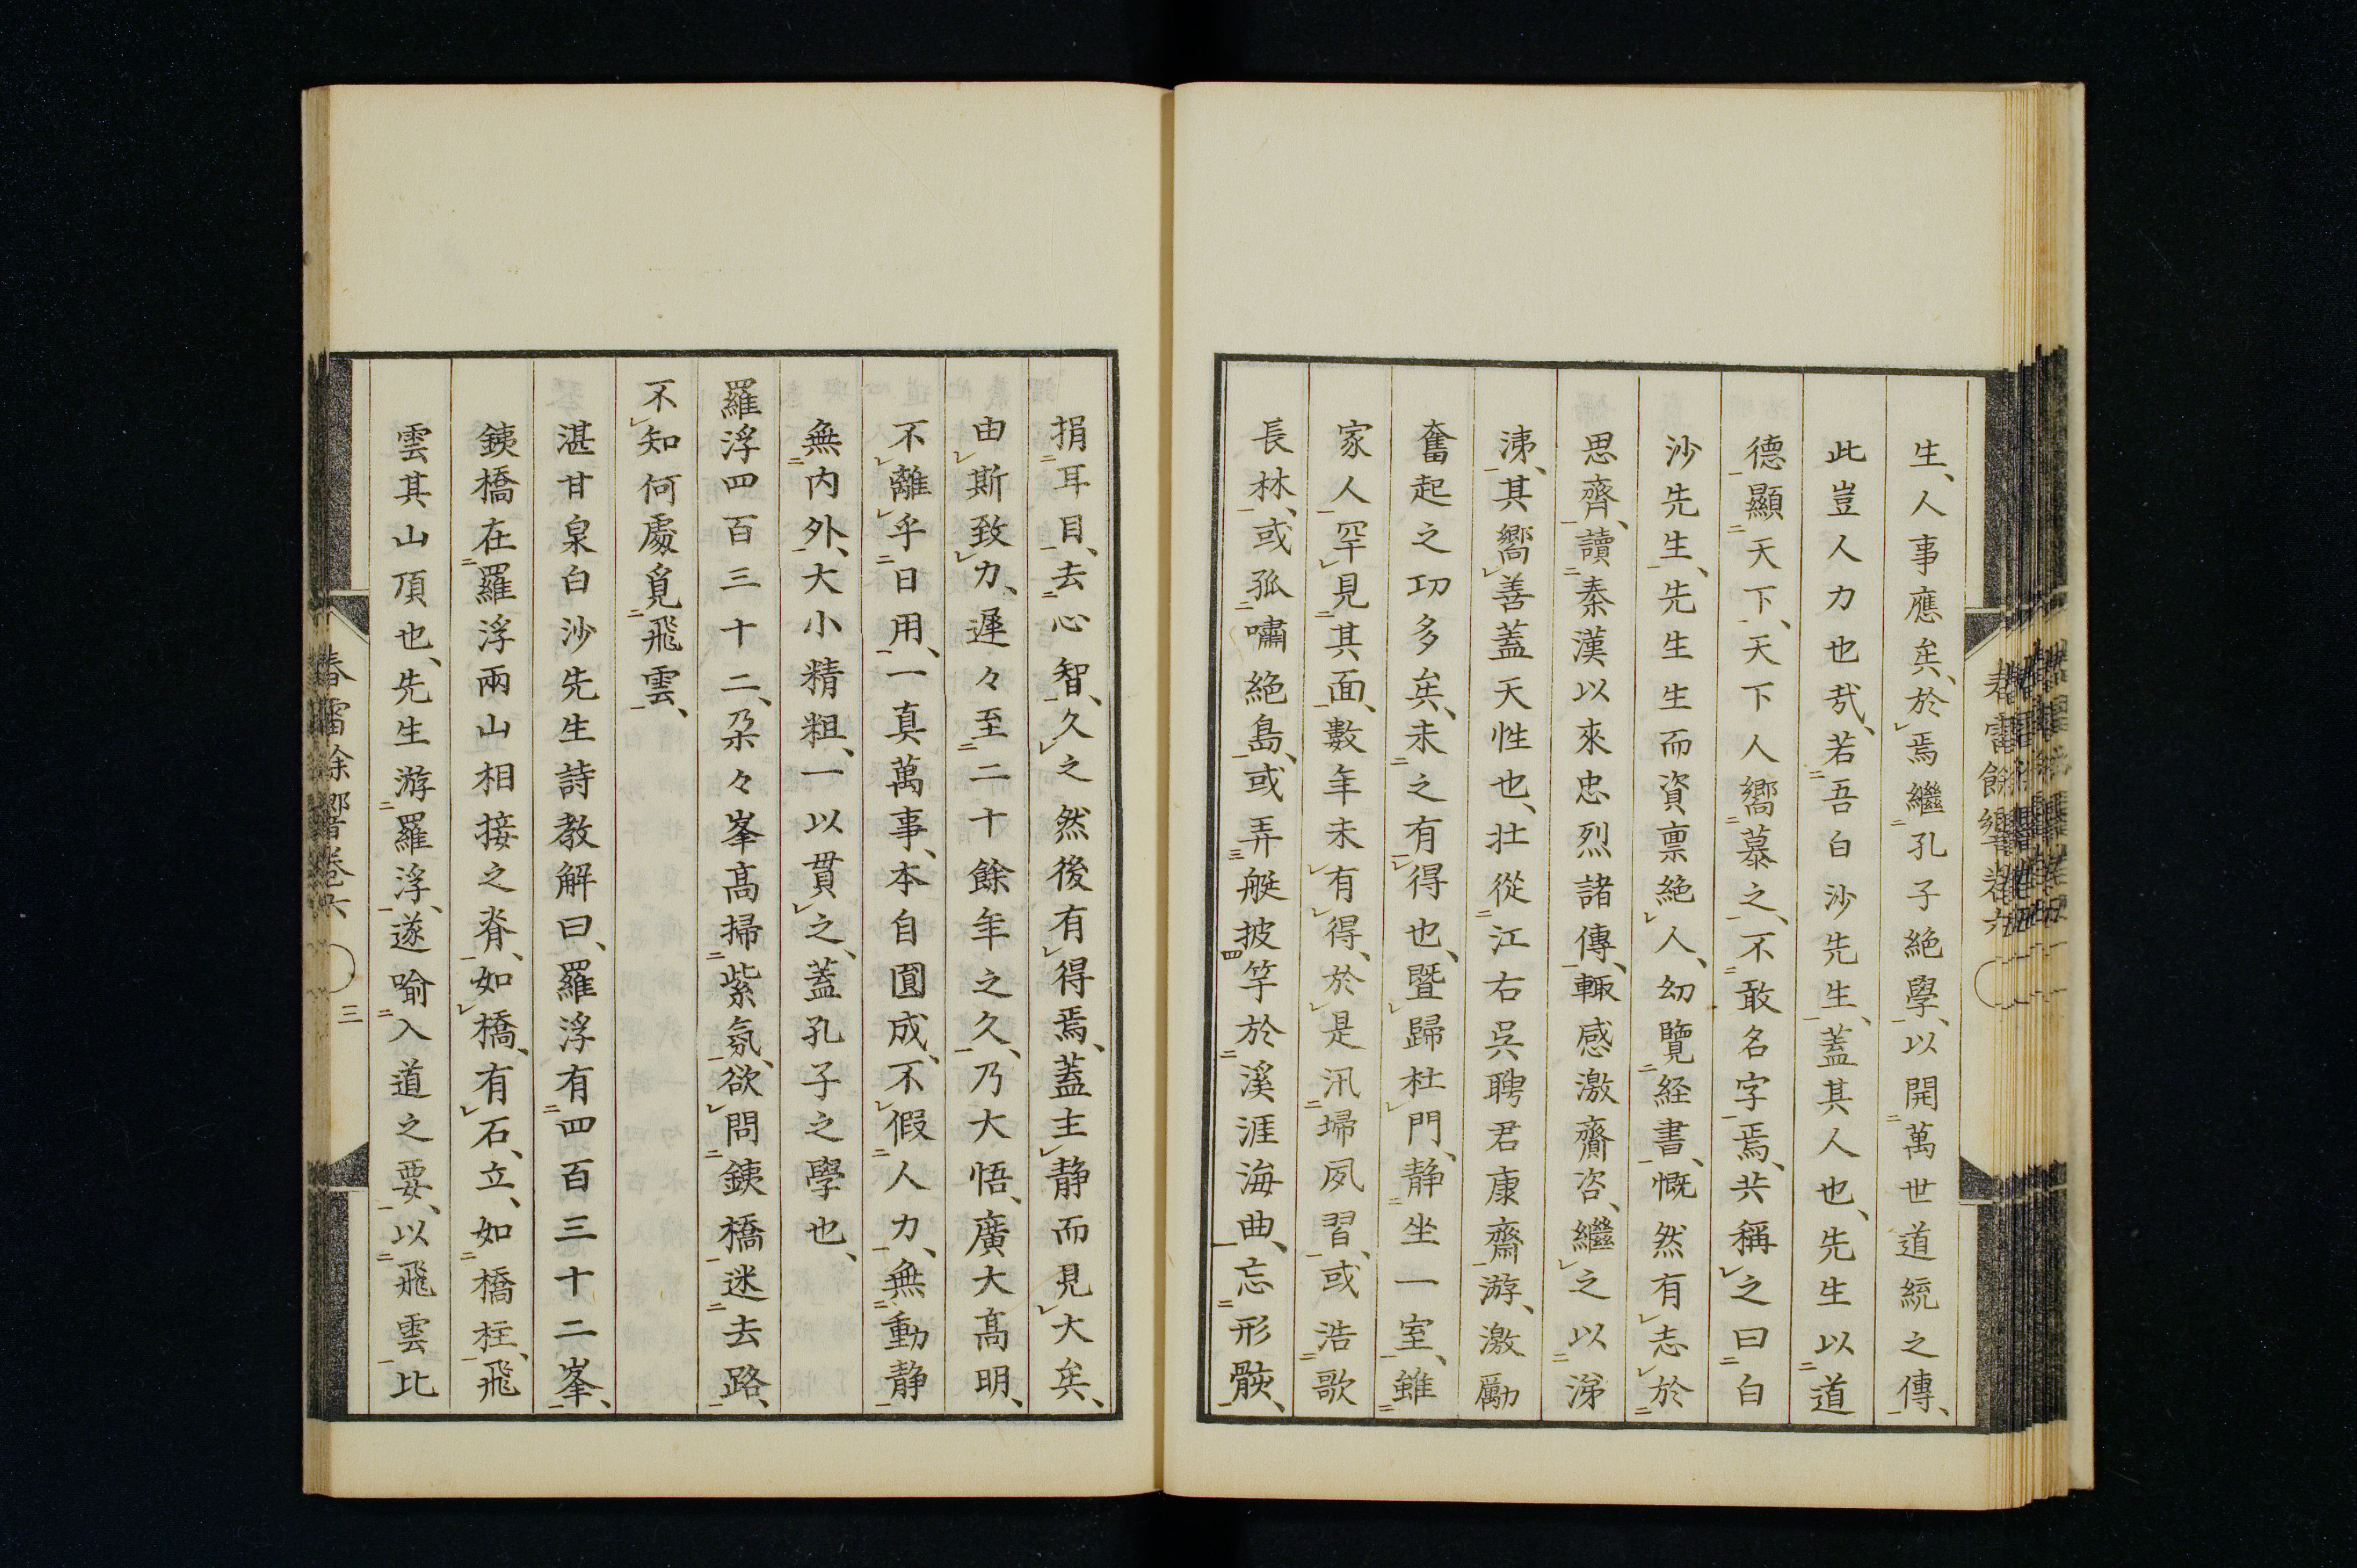 生、人事應矣、於焉繼孔子絶學、以開萬世道統之傳、
此豈人力也㢤、若吾白沙先生、蓋其人也、先生以道
德顯天下、天下人嚮慕之、不敢名字焉、共稱之曰白
沙先生、先生生而資禀絶人、幼覽経書、慨然有志於
思齊、讀秦漢以來忠烈諸傳、輙感激齎咨、繼之以涕
洟、其嚮善蓋天性也、壮從江右呉聘君康齋游、激勵
奮起之功多矣、未之有得也、曁歸杜門、静坐一室、雖
家人罕見其面、數年未有得、於是汛埽夙習、或浩歌
長林、或孤嘯絶島、或弄艇披竿於溪涯海曲、忘形骸、
捐耳目、去心智、久之然後有得焉、蓋主静而見大矣、
由斯致力、遲々至二十餘年之久、乃大悟、廣大高明、
不離乎日用、一真萬事、本自圓成、不假人力、無動静
無内外、大小精粗、一以貫之、蓋孔子之學也、
羅浮四百三十二、朶々峯高掃紫氛、欲問銕橋迷去路、
不知何處覓飛雲、
湛甘泉白沙先生詩教解曰、羅浮有四百三十二峯、
銕橋在羅浮兩山相接之脊、如橋、有石、立、如橋柱、飛
雲其山頂也、先生游羅浮、遂喻入道之要、以飛雲比
春雷餘響卷六 三